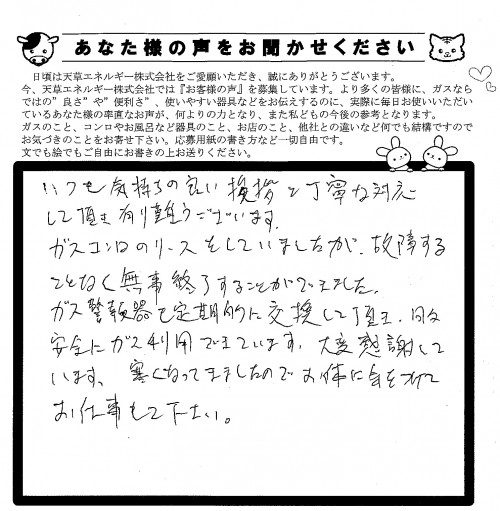 あなた様の声をお聞かせください
日頃は天草エネルギー株式会社をご愛顧いただき、誠にありがとうございます。
今、天草エネルギー株式会社では『お客様の声』を募集しています。より多くの皆様に、ガスなら
ではの”良さ”や”便利さ”、使いやすい器具などをお伝えするのに、実際に毎日お使いいただい
ているあなた様の率直なお声が、何よりの力となり、また私どもの今後の参考となります。
ガスのこと、コンロやお風呂など器具のこと、お店のこと、他社との違いなど何でも結構ですので
お気づきのことをお寄せ下さい。応募用紙の書き方など一切自由です。
文でも絵でもご自由にお書きの上お送りください。
いつも気持ちの良い挨拶と丁寧な対応
して頂き有り難うございます。
ガスコンロのリースをしていましたが、故障する
ことなく無事終了することができました。
ガス警報器も定期的に交換して頂き、日々
安全にガス利用できています。大変感謝して
います。寒くなってきましたのでお体に気をつけて
お仕事して下さい。